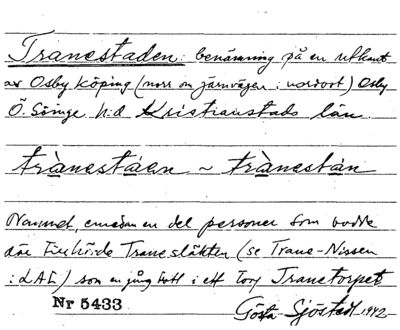 Tranestaden: benämning på en utkant
av Osby köping (norr om järnvägen i nordost) Osby
Ö. Göinge h:d Kristianstads län.
trànestáen ~ trànestán
Namnet, emedan en del personer som bodde
där tillhörde Tranesläkten (se Trane-Nissen
i LAL) som en gång bott i ett torp Tranetorpet
Nr 5433
Gösta Sjöstedt 1942